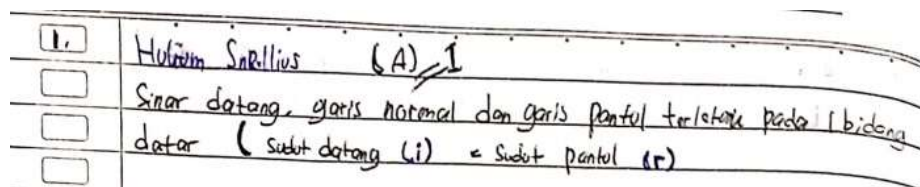 1. Hukum Snellius (A) I
Sinar datang, garis normal dan garis Pantul terletak pada 1 bidang
datar ( sudut datang (i) = Sudut Pantul (r)